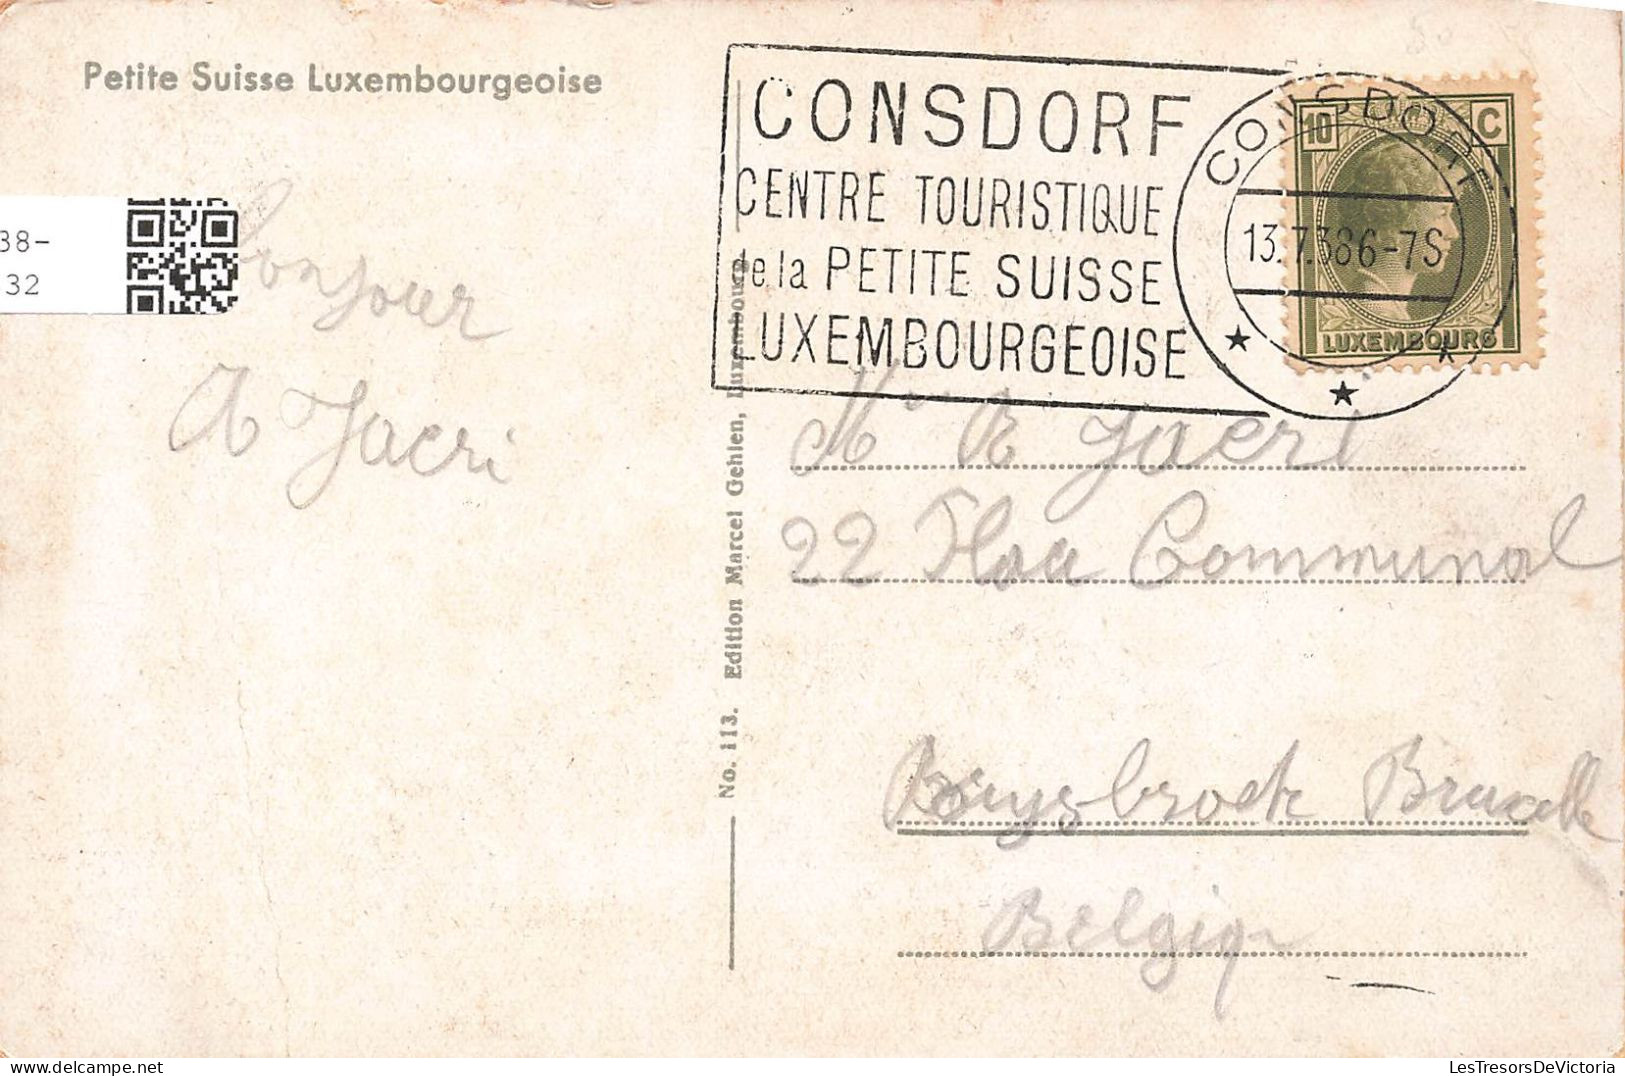 Petite Suisse Luxembourgeoise
CONSDORF
CENTRE TOURISTIQUE
de la PETITE SUISSE
LUXEMBOURGEOISE
CONSDORF
13.7.38 6-7S
10 C
LUXEMBOURG
38-
32
bonjour
A Jacri
No. 113. Edition Marcel Gehlen, Luxembourg
A Jacri
22 Communal
Bruxelle
Belgiq
LesTresorsDeVictoria